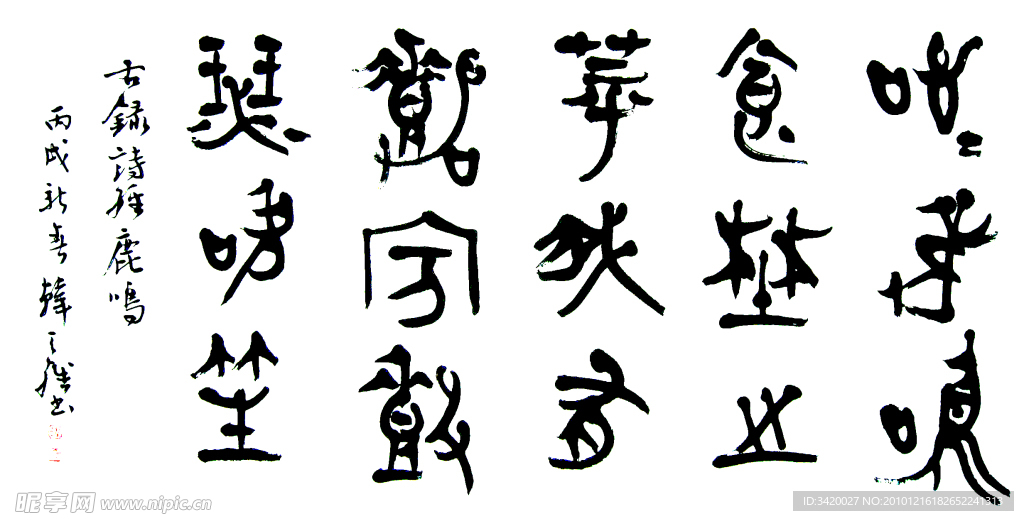 呦呦鹿鳴
食埜之
苹我有
嘉賓鼓
瑟吹笙
古錄詩經鹿鳴
丙戌新春韓书
昵享网 www.nipic.cn
ID:3420027 NO:20101216182652241313